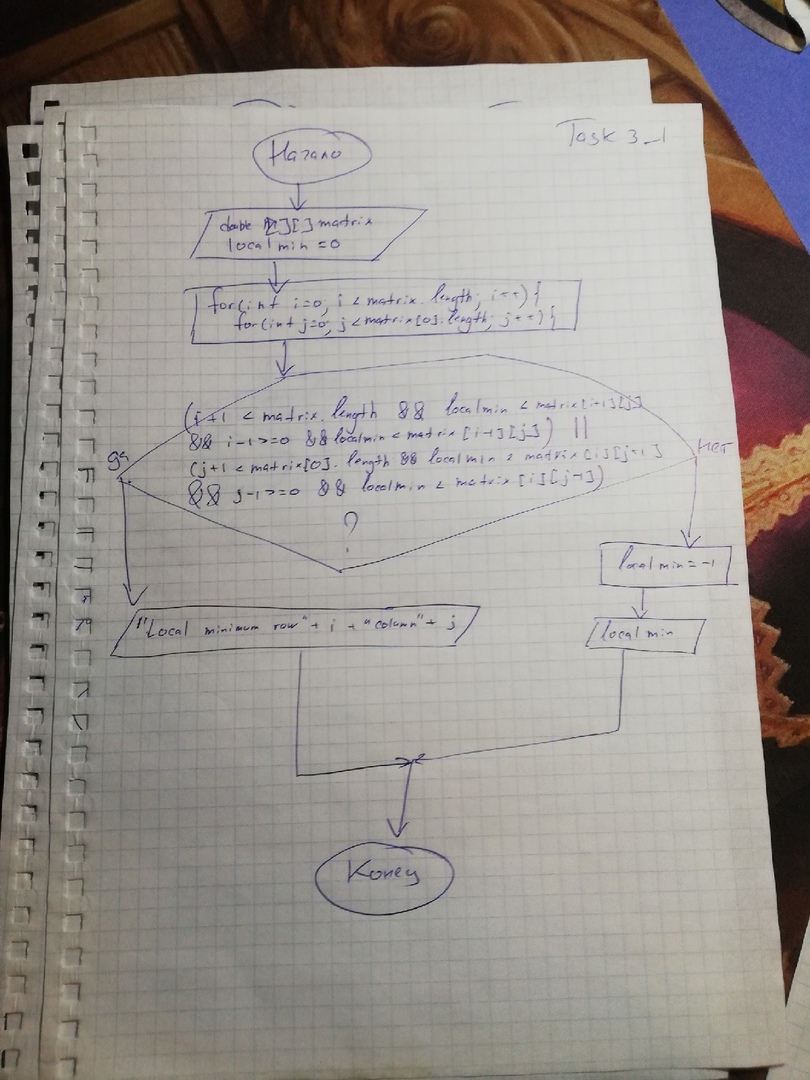 Task 3_1
Начало
double [][] matrix
localmin = 0
for(int i=0; i < matrix.length; i++) {
for(int j=0; j < matrix[0].length; j++) {
(i+1 < matrix.length && localmin < matrix[i+1][j]
&& i-1 >= 0 && localmin < matrix[i-1][j]) ||
(j+1 < matrix[0].length && localmin < matrix[i][j+1]
&& j-1 >= 0 && localmin < matrix[i][j-1])
?
да
нет
localmin = -1
"Local minimum row" + i + "column" + j
localmin
Конец